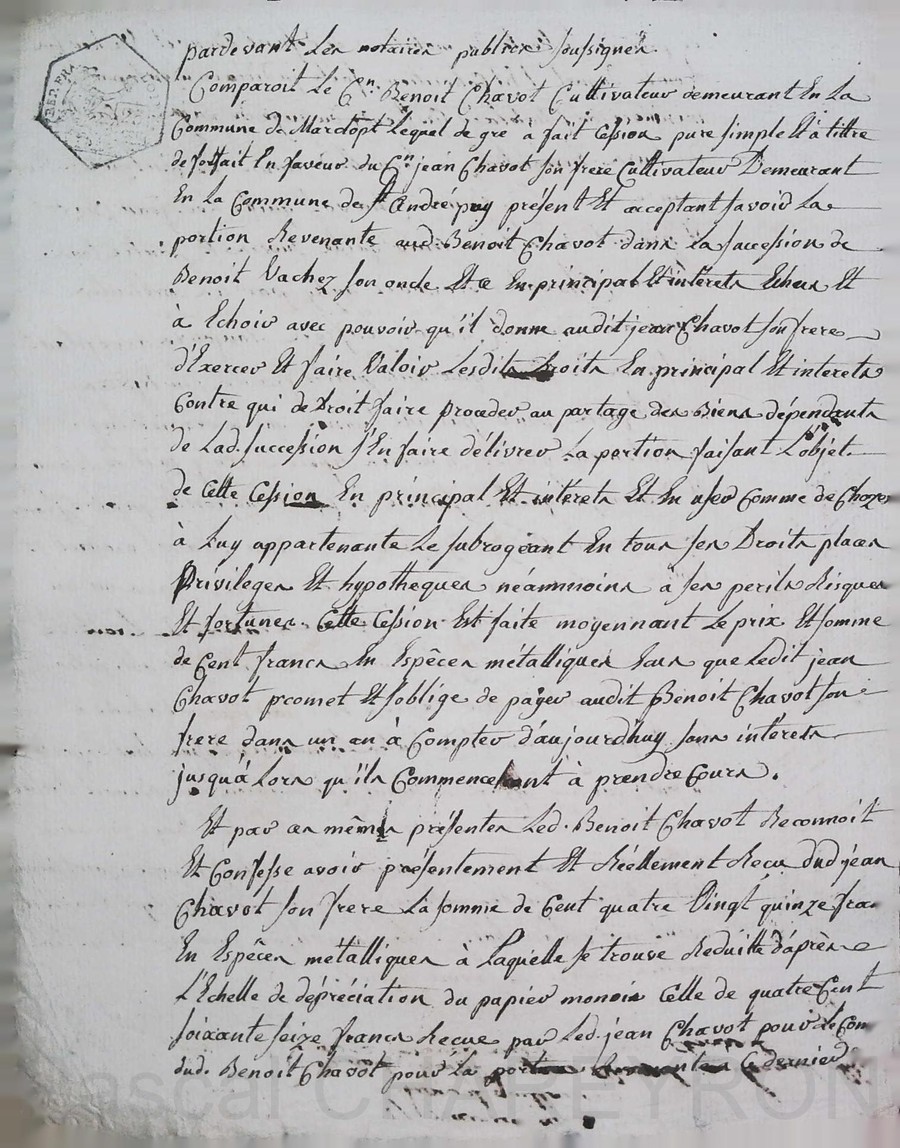 pardevant Les notaires publics soussignés
Comparoit Le Cn. Benoit Chavot Cultivateur demeurant En La
Commune de Marclopt Lequel de gré a fait Cession pure simple Et à tittre
de forfait En faveur du Cn. jean Chavot son frere Cultivateur Demeurant
En La Commune de St André puy présent Et acceptant savoir La
portion Revenante aud. Benoit Chavot dans La succession de
Benoit Vachez son oncle Et ce En principal Et intérets Echus Et
à Echoir avec pouvoir qu'il donne audit jean Chavot son frere
d'Exercer Et faire Valoir Lesdits Droits En principal Et interets
Contre qui de Droit faire proceder au partage des Biens dépendants
de Lad. succession s'En faire délivrer La portion faisant L'objet
de Cette Cession En principal Et intérets Et En user Comme de Choses
à Luy appartenante Le subrogeant En tous ses Droits places
Privileges Et hypotheques néammoins à ses perils Risques
Et fortunes. Cette Cession Est faite moyennant Le prix Et somme
de Cent francs En Espêces métalliques que Ledit jean
Chavot promet Et s'oblige de payer audit Benoit Chavot son
frere dans un an à Compter d'aujourdhuy sans intérets
jusqu'à Lors qu'ils Commenceront à prendre Cours.
Et par ces mêmes présentes Led. Benoit Chavot Reconnoit
Et Confesse avoir présentement Et Réellement Recu dud jean
Chavot son frere La somme de Cent quatre Vingt quinze fra
En Espêces métalliques à Laquelle se trouve Reduitte d'après
L'Echelle de dépréciation du papier monoie Celle de quatre Cent
soixante seize francs Recue par Led. jean Chavot pour Le Com
dud. Benoit Chavot pour La portion Revenante a Ce dernier